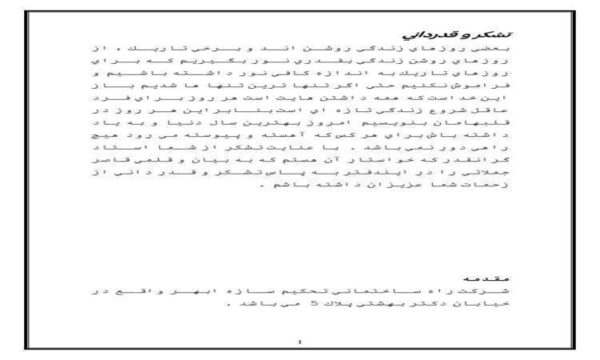 تشکر و قدرداني
بعضی روزهاي زندگی روشن اند و برخی تاريك . از
روزهاي روشن زندگی بقدري نور بگيريم که براي
روزهاي تاريك به اندازه کافی نور داشته باشيم و
فراموش نکنيم حتی اگر تنهاترين تنها ها شديم باز
اين خداست که همه داشتن هايت است هر روز براي فرد
عاقل شروع زندگی تازه اي است بنابراين هر روز در
قلبهامان بنويسيم امروز بهترين سال دنيا و به ياد
داشته باش براي هر کس که آهسته و پيوسته می رود هيچ
راهی دور نمی باشد . با عنايت تشکر از شما استاد
گرانقدر که خواستار آن هستم که به بيان و قلمی قاصر
جملاتی را در ايندفتر به پاس تشکر و قدر دانی از
زحمات شما عزيزان داشته باشم .
مقدمه
شرکت راه ساختمانی تحکيم سازه ابهر واقع در
خيابان دکتر بهشتی پلاك 5 می باشد .
1